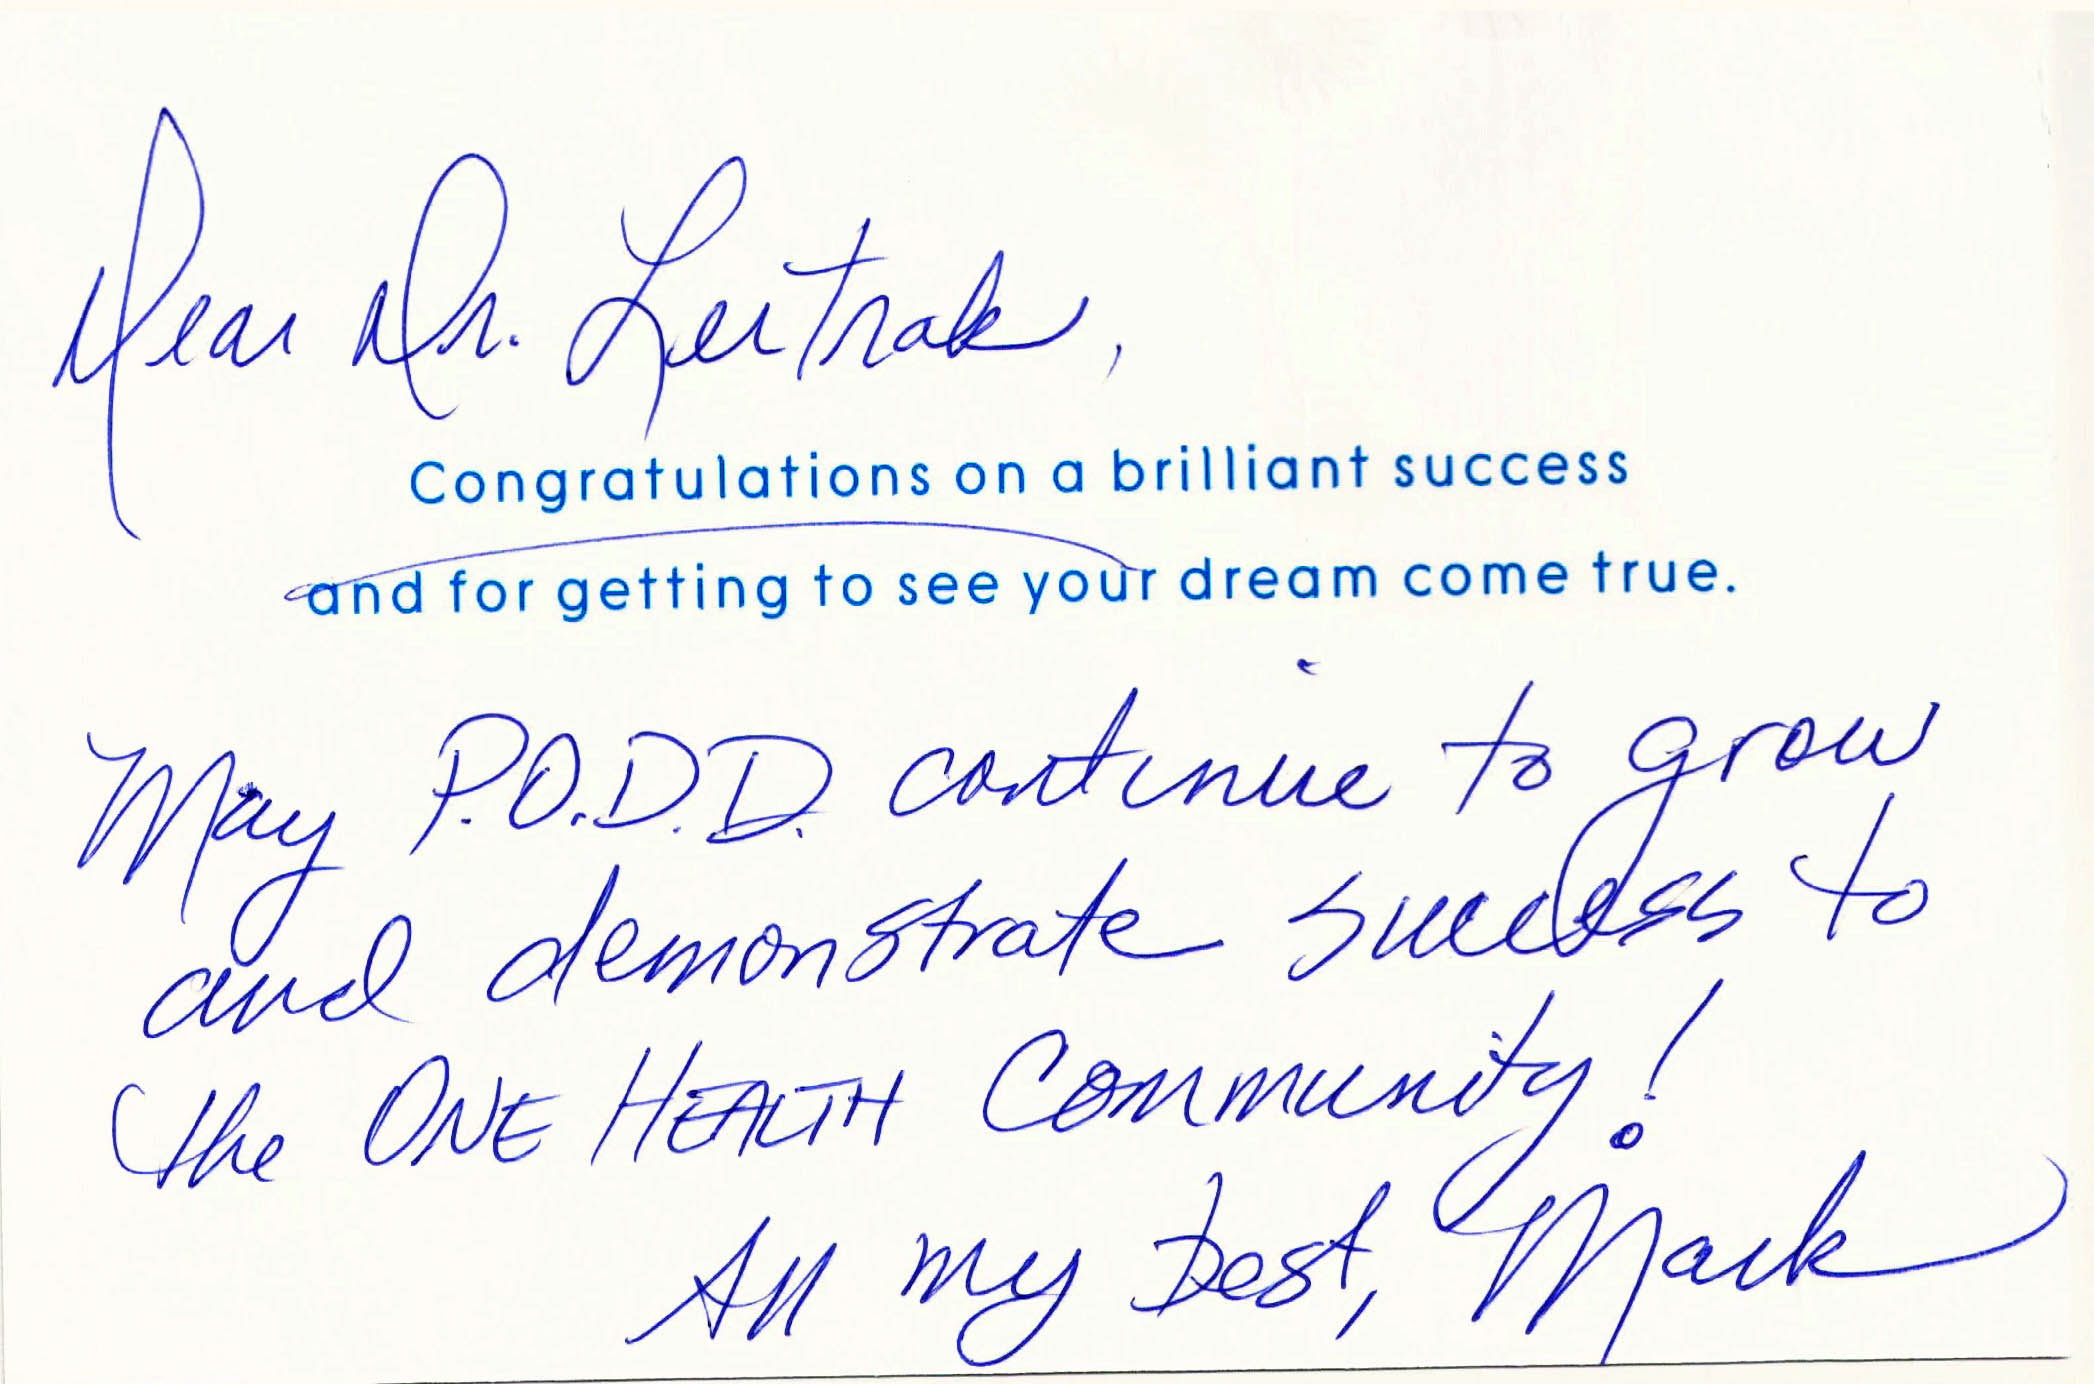 Dear Dr. Lertrak,
Congratulations on a brilliant success
and for getting to see your dream come true.
May P.O.D.D. continue to grow
and demonstrate success to
the ONE HEALTH Community!
All my best, Mark